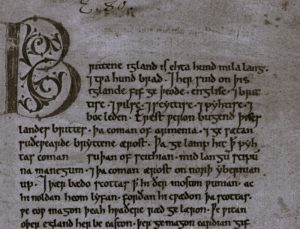 Brittene igland is ehta hund mila lang.
⁊ tƿa hund brad. ⁊ her sind on þis
iglande fif geþeode. englisc. ⁊ brit
tisc. ⁊ ƿilsc. ⁊ scyttisc. ⁊ pyhtisc. ⁊
boc leden. Erest ƿeron bugend þises
landes brittes. þa coman of armenia. ⁊ gesætan
suðeƿearde bryttene ærost. Þa gelamp hit ꝥ pyh
tas coman suþan of scithian. mid langū scipū
na manegum. ⁊ þa coman ærost on norþ ybernian
up. ⁊ þær bædo scottas ꝥ hi ðer moston ƿunian. ac
hi noldan heom lyfan. forðan hi cƿædon þa scottas.
ƿe eoƿ magon þeah hƿaðere ræd gelæron. Ƿe ƿitan
oþer egland her be easton. þer ge magon eardian gif